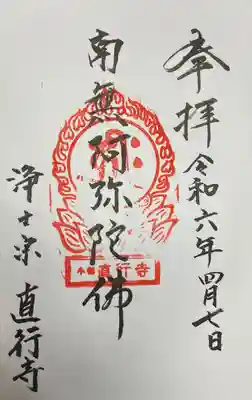 奉拝 令和六年四月七日
南無阿弥陀佛
浄土宗 直行寺
直行寺